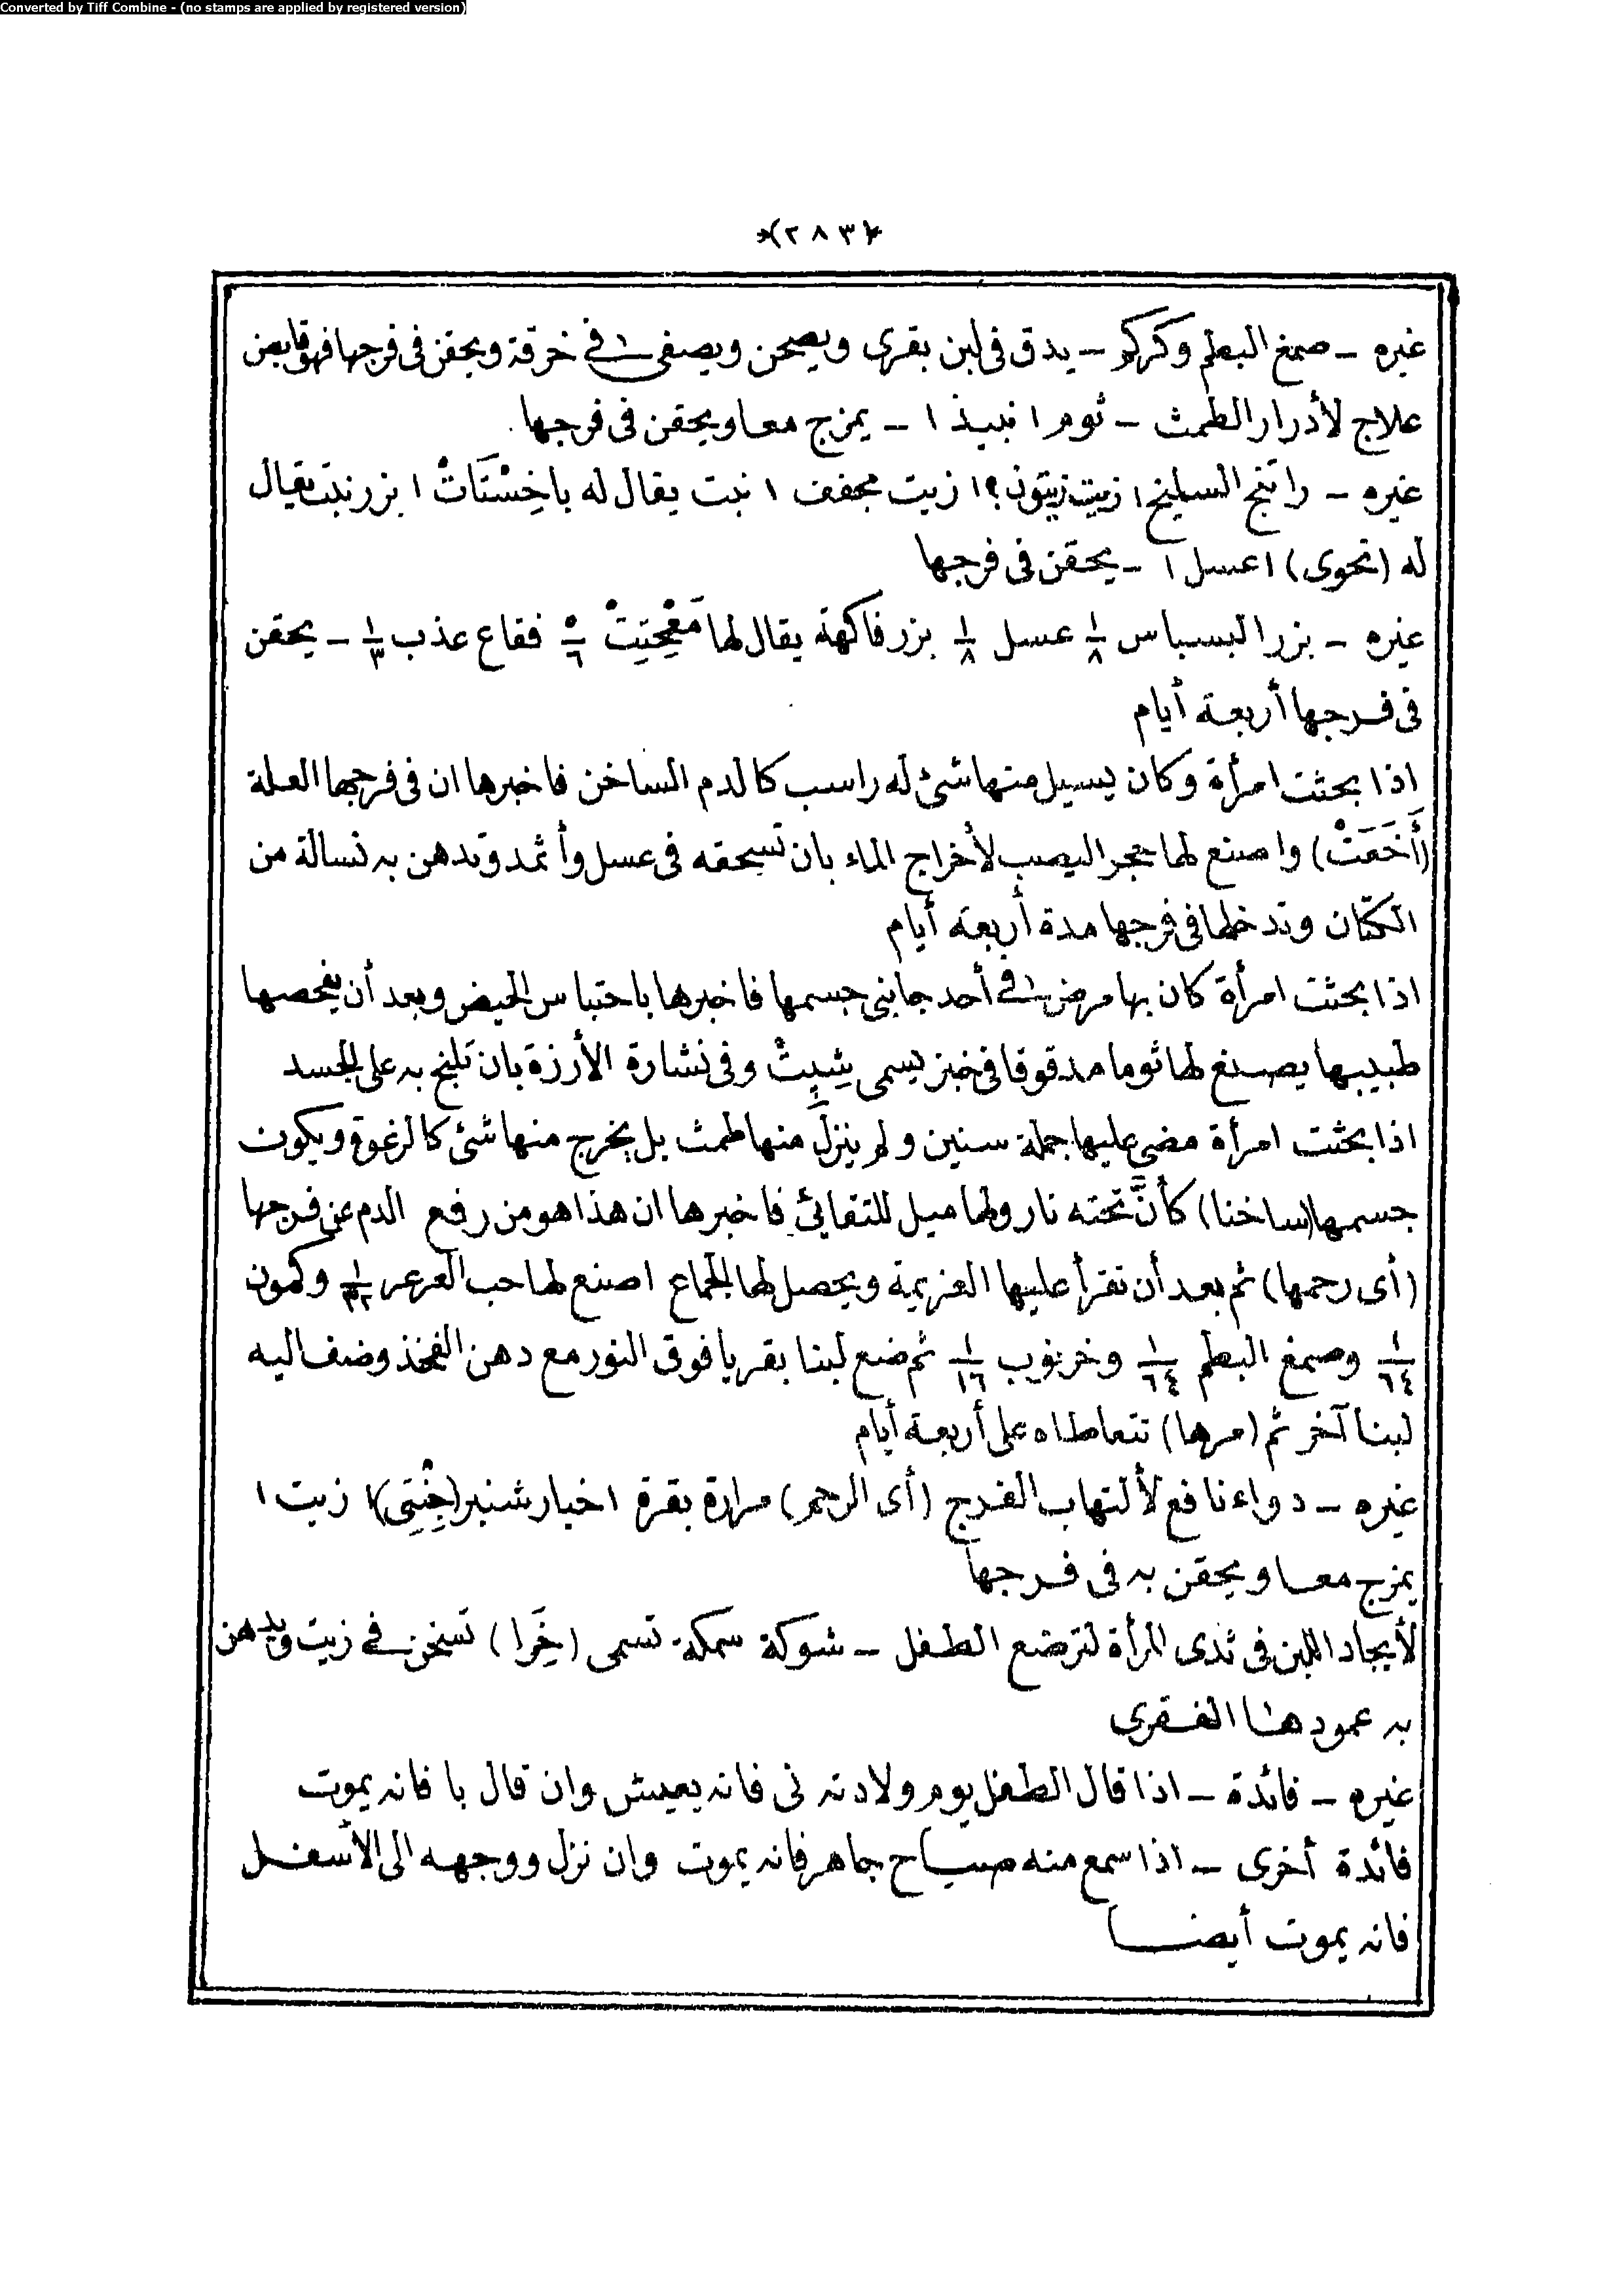 Converted by Tiff Combine - (no stamps are applied by registered version)
*(٢٨٣)*
غيره ـ صمغ البطم وكركم ـ يدق فى لبن بقرى ويصحن ويصفى فى خرقة ويحقن فى فرجها فهو قابض
علاج لأدرار الطمث ـ ثوم ١ نبيذ ١ ـ يمزج معا ويحقن فى فرجها.
غيره ـ راتنج السليخ ١ زيت زيتون ؟ ١ زيت مجفف ١ نبت يقال له باخِسْتَاتْ ١ بزر نبت يقال
له (تحوى) ١ عسل ١ ـ يحقن فى فرجها
غيره ـ بزر البسباس ١/٨ عسل ١/٨ بزر فاكهة يقال لها ٥/٦ فقاع عذب ١/٣ ـ يحقن
فى فرجها أربعة أيام
اذا بحثت امرأة وكان يسيل منها شئ له راسب كالدم الساخن فاخبرها ان فى فرجها العلة
(أَخَعَتْ) واصنع لها حجر اليصب لأخراج الماء بان تسحقه فى عسل وأثمد وتدهن به نسالة من
الكتان وتدخلها فى فرجها مدة أربعة أيام
اذا بحثت امرأة كان بها مرض فى أحد جابنى جسمها فاخبرها باحتباس الحيض وبعد أن يفحصها
طبيبها يصنع لها ثوما مدقوقا فى خبز يسمى شِبِتْ وفى نشارة الأرزة بان تلبخ به على الجسد
اذا بحثت امرأة مضى عليها جملة سنين ولم ينزل منها طمث بل يخرج منها شئ كالرغوة ويكون
جسمها (ساخنا) كأنَّ تحته نار ولها ميل للتقائى فاخبرها ان هذا هو من رفع الدم عن فرجها
(أى رحمها) ثم بعد أن تقرأ عليها العزيمة ويحصل لها الجماع اصنع لها حب العرعر ١/٣٢ وكمون
١/٦٤ وصمغ البطم ١/٦٤ وخرنوب ١/١٦ ثم ضع لبنا بقريا فوق النور مع دهن الفخذ وضف اليه
لبنا آخر ثم (مرها) تتعاطاه على أربعة أيام
غيره ـ دواء نافع لألتهاب الفرج (أى الرحم) مرارة بقرة ١ خيار شنبر (جِنْتِى) ١ زيت ١
يمزج معا ويحقن به فى فرجها
لأيجاد اللبن فى ثدى المرأة لترضع الطفل ـ شوكة سمكة تسمى (خَِرا) تسخن فى زيت ويدهن
به عمودها الفقرى
غيره ـ فائدة ـ اذا قال الطفل يوم ولادته نى فانه يعيش وان قال با فانه يموت
فائدة أخرى ـ اذا سمع منه صياح جاهر فانه يموت وان نزل ووجهه الى الأسفل
فانه يموت أيضا